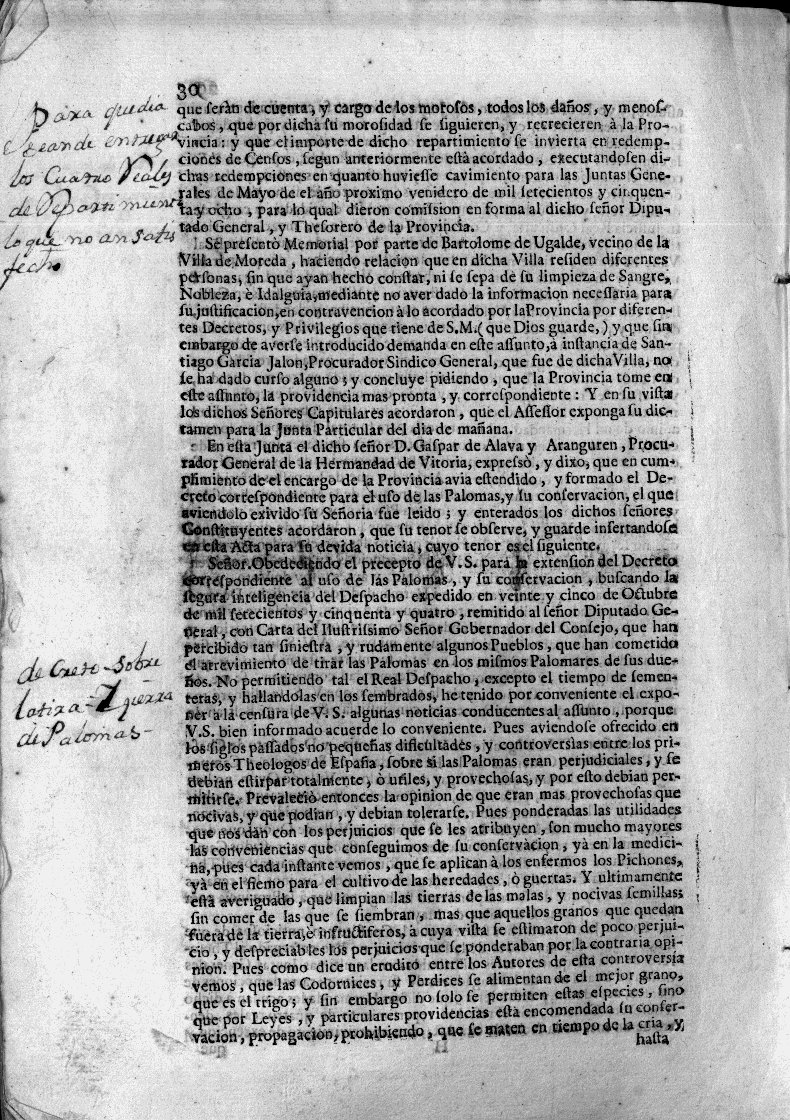 30
Para que dia
se ean de entregar
los Cuatro Reales
de Repartimiento
lo que no an satis
fecho
que seràn de cuenta, y cargo de los morosos, todos los daños, y menos-
cabos, que por dicha su morosidad se siguieren, y recrecieren à la Pro-
vincia: y que el importe de dicho repartimiento se invierta en redemp-
ciones de Censos, segun anteriormente està acordado, executandosen di-
chas redempciones en quanto huviesse cavimiento para las Juntas Gene-
rales de Mayo de el año proximo venidero de mil setecientos y cinquen-
ta y ocho, para lo qual dieron comission en forma al dicho señor Dipu-
tado General, y Thesorero de la Provincia.
Se presentò Memorial por parte de Bartolome de Ugalde, vecino de la
Villa de Moreda, haciendo relacion que en dicha Villa residen diferentes
personas, sin que ayan hecho constar, ni se sepa de su limpieza de Sangre,
Nobleza, è Idalguia, mediante no aver dado la informacion necessaria para
su justificacion, en contravencion à lo acordado por la Provincia por diferen-
tes Decretos, y Privilegios que tiene de S.M. (que Dios guarde,) y que sin
embargo de averse introducido demanda en este assunto, à instancia de San-
tiago Garcia Jalon, Procurador Sindico General, que fue de dicha Villa, no
se ha dado curso alguno; y concluye pidiendo, que la Provincia tome en
este assunto, la providencia mas pronta, y correspondiente: Y en su vista
los dichos Señores Capitulares acordaron, que el Assessor exponga su dic-
tamen para la Junta Particular del dia de mañana.
En esta Junta el dicho señor D. Gaspar de Alava y Aranguren, Procu-
rador General de la Hermandad de Vitoria, expressò, y dixo, que en cum-
plimiento de el encargo de la Provincia avia estendido, y formado el De-
creto correspondiente para el uso de las Palomas, y su conservacion, el que
aviendolo exivido su Señoria fue leido; y enterados los dichos señores
Constituyentes acordaron, que su tenor se observe, y guarde insertandose
en esta Acta para su devida noticia, cuyo tenor es el siguiente.
Señor. Obedeciendo el precepto de V.S. para la extension del Decreto
correspondiente al uso de las Palomas, y su conservacion, buscando la
segura inteligencia del Despacho expedido en veinte y cinco de Octubre
de mil setecientos y cinquenta y quatro, remitido al señor Diputado Ge-
neral, con Carta del Ilustrissimo Señor Gobernador del Consejo, que han
percibido tan siniestra, y rudamente algunos Pueblos, que han cometido
el atrevimiento de tirar las Palomas en los mismos Palomares de sus due-
ños. No permitiendo tal el Real Despacho, excepto el tiempo de semen-
teras, y hallandolas en los sembrados, he tenido por conveniente el expo-
ner à la censura de V.S. algunas noticias conducentes al assunto, porque
V.S. bien informado acuerde lo conveniente. Pues aviendose ofrecido en
los siglos passados no pequeñas dificultades, y controversias entre los pri-
meros Theologos de España, sobre si las Palomas eran perjudiciales, y se
debian estirpar totalmente, ò utiles, y provechosas, y por esto debian per-
mitirse. Prevaleciò entonces la opinion de que eran mas provechosas que
nocivas, y que podian, y debian tolerarse. Pues ponderadas las utilidades
que nos dàn con los perjuicios que se les atribuyen, son mucho mayores
las conveniencias que conseguimos de su conservacion, yà en la medici-
na, pues cada instante vemos, que se aplican à los enfermos los Pichones,
yà en el siemo para el cultivo de las heredades, ò guertas. Y ultimamente
està averiguado, que limpian las tierras de las malas, y nocivas semillas;
sin comer de las que se siembran, mas que aquellos granos que quedan
fuera de la tierra, è infructiferos, à cuya vista se estimaron de poco perjui-
cio, y despreciables los perjuicios que se ponderaban por la contraria opi-
nion. Pues como dice un erudito entre los Autores de esta controversia
vemos, que las Codornices, y Perdices se alimentan de el mejor grano,
que es el trigo; y sin embargo no solo se permiten estas especies, sino
que por Leyes, y particulares providencias està encomendada su conser-
vacion, propagacion, prohibiendo, que se maten en tiempo de la cria, y
hasta
de Creto sobre
la tira
de Palomas